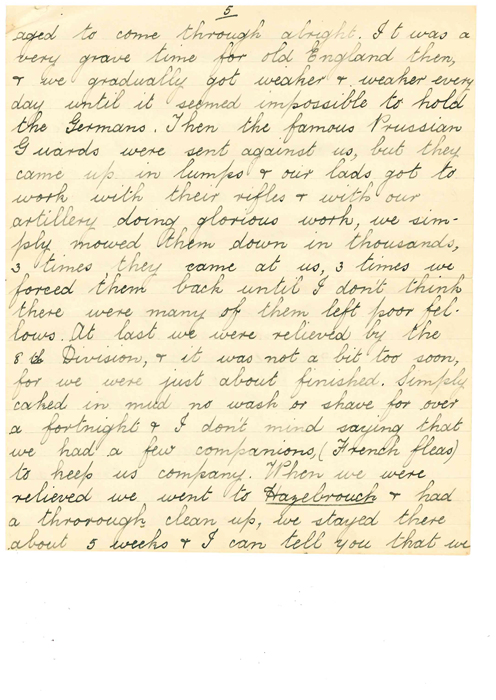 5
aged to come through alright. It was a
very grave time for old England then,
& we gradually got weaker & weaker every
day until it seemed impossible to hold
the Germans. Then the famous Prussian
Guards were sent against us, but they
came up in lumps & our lads got to
work with their rifles & with our
artillery doing glorious work, we sim-
ply mowed them down in thousands,
3 times they came at us, 3 times we
forced them back until I don't think
there were many of them left poor fel-
lows. At last we were relieved by the
8th Division, & it was not a bit too soon,
for we were just about finished. Simply
caked in mud no wash or shave for over
a fortnight & I don't mind saying that
we had a few companions, (French fleas)
to keep us company. When we were
relieved we went to Hazebrouch & had
a throrough clean up, we stayed there
about 5 weeks & I can tell you that we